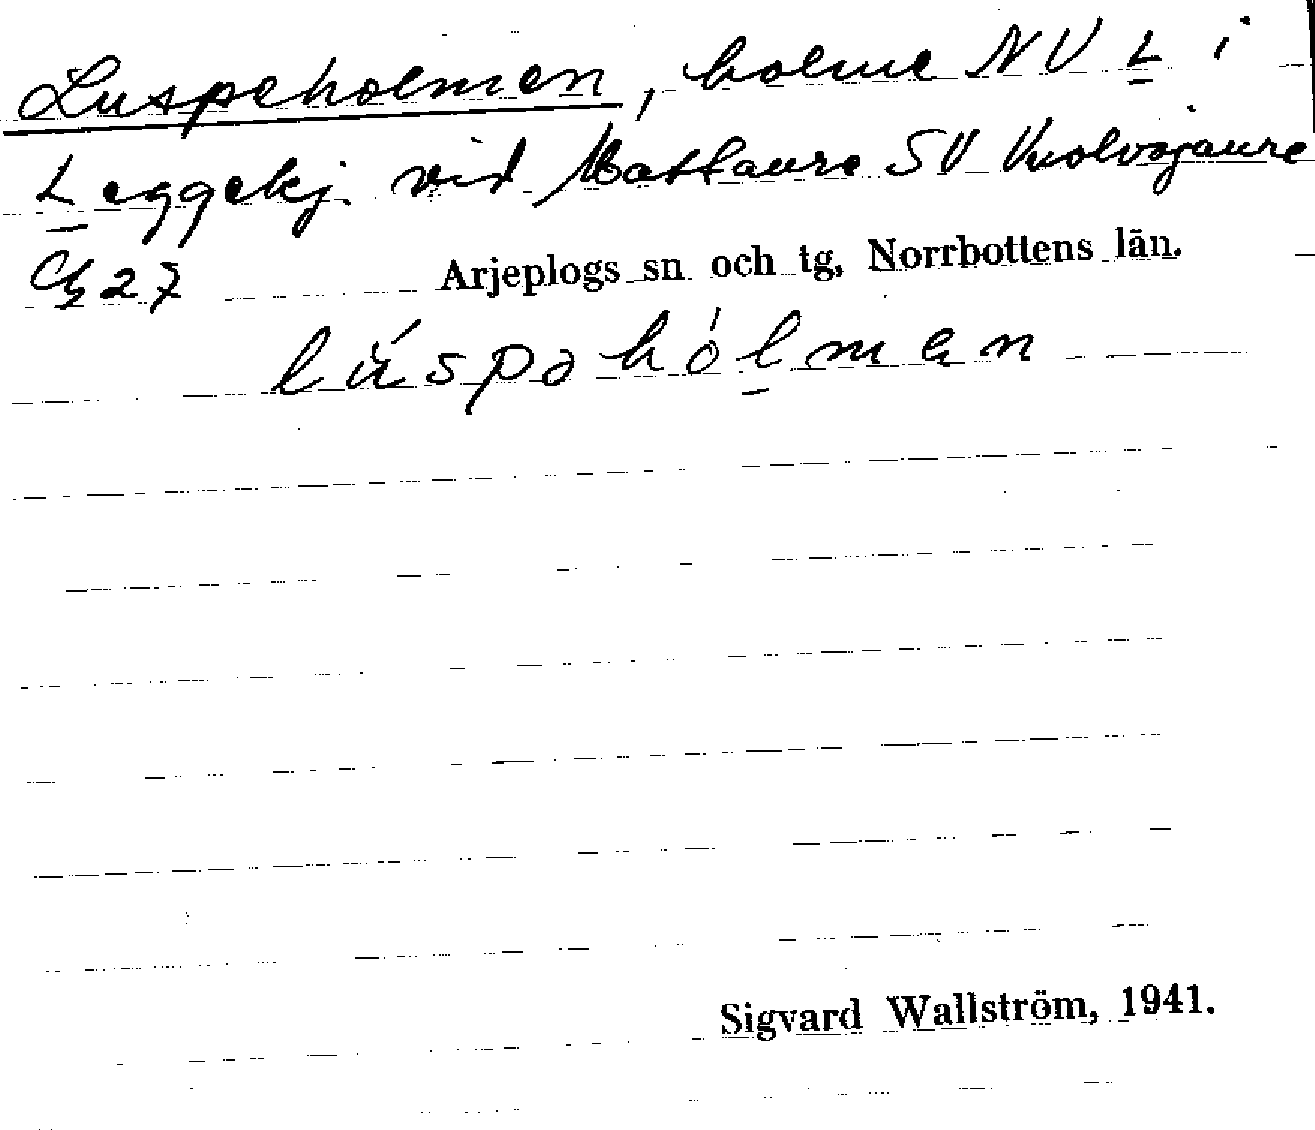 Luspeholmen, holme NV L i
Leggekj. vid Mattaure SV Vuolvojaure
27 Arjeplogs sn och tg, Norrbottens län.
lúspəhólmɘn
Sigvard Wallström, 1941.